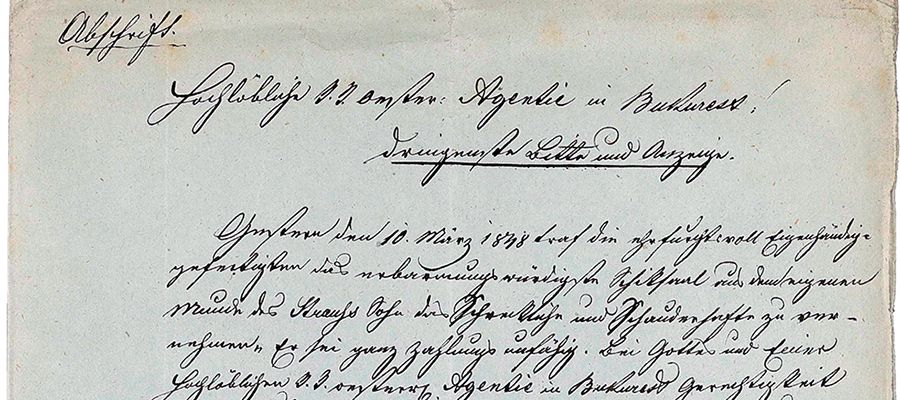 Abschrift.
Hochlöbliche K. K. oester: Agentie in Bukurest!
dringenste Bitte und Anzeige.
Gestern den 10. März 1848 traf die ehrfurgtsvoll Eigenhändig-
gefertigten das erbarmungswürdigste Schiksaal aus dem eigenen
Munde des Strauhs Sohn das Schrekliche und Schauderhafte zu ver-
nehmen, Er sei ganz Zahlungs unfähig. Bei Gottes und Einer
Hochlöblichen K. K. oesterr. Agentie in Bukurest Gerechtigkeit